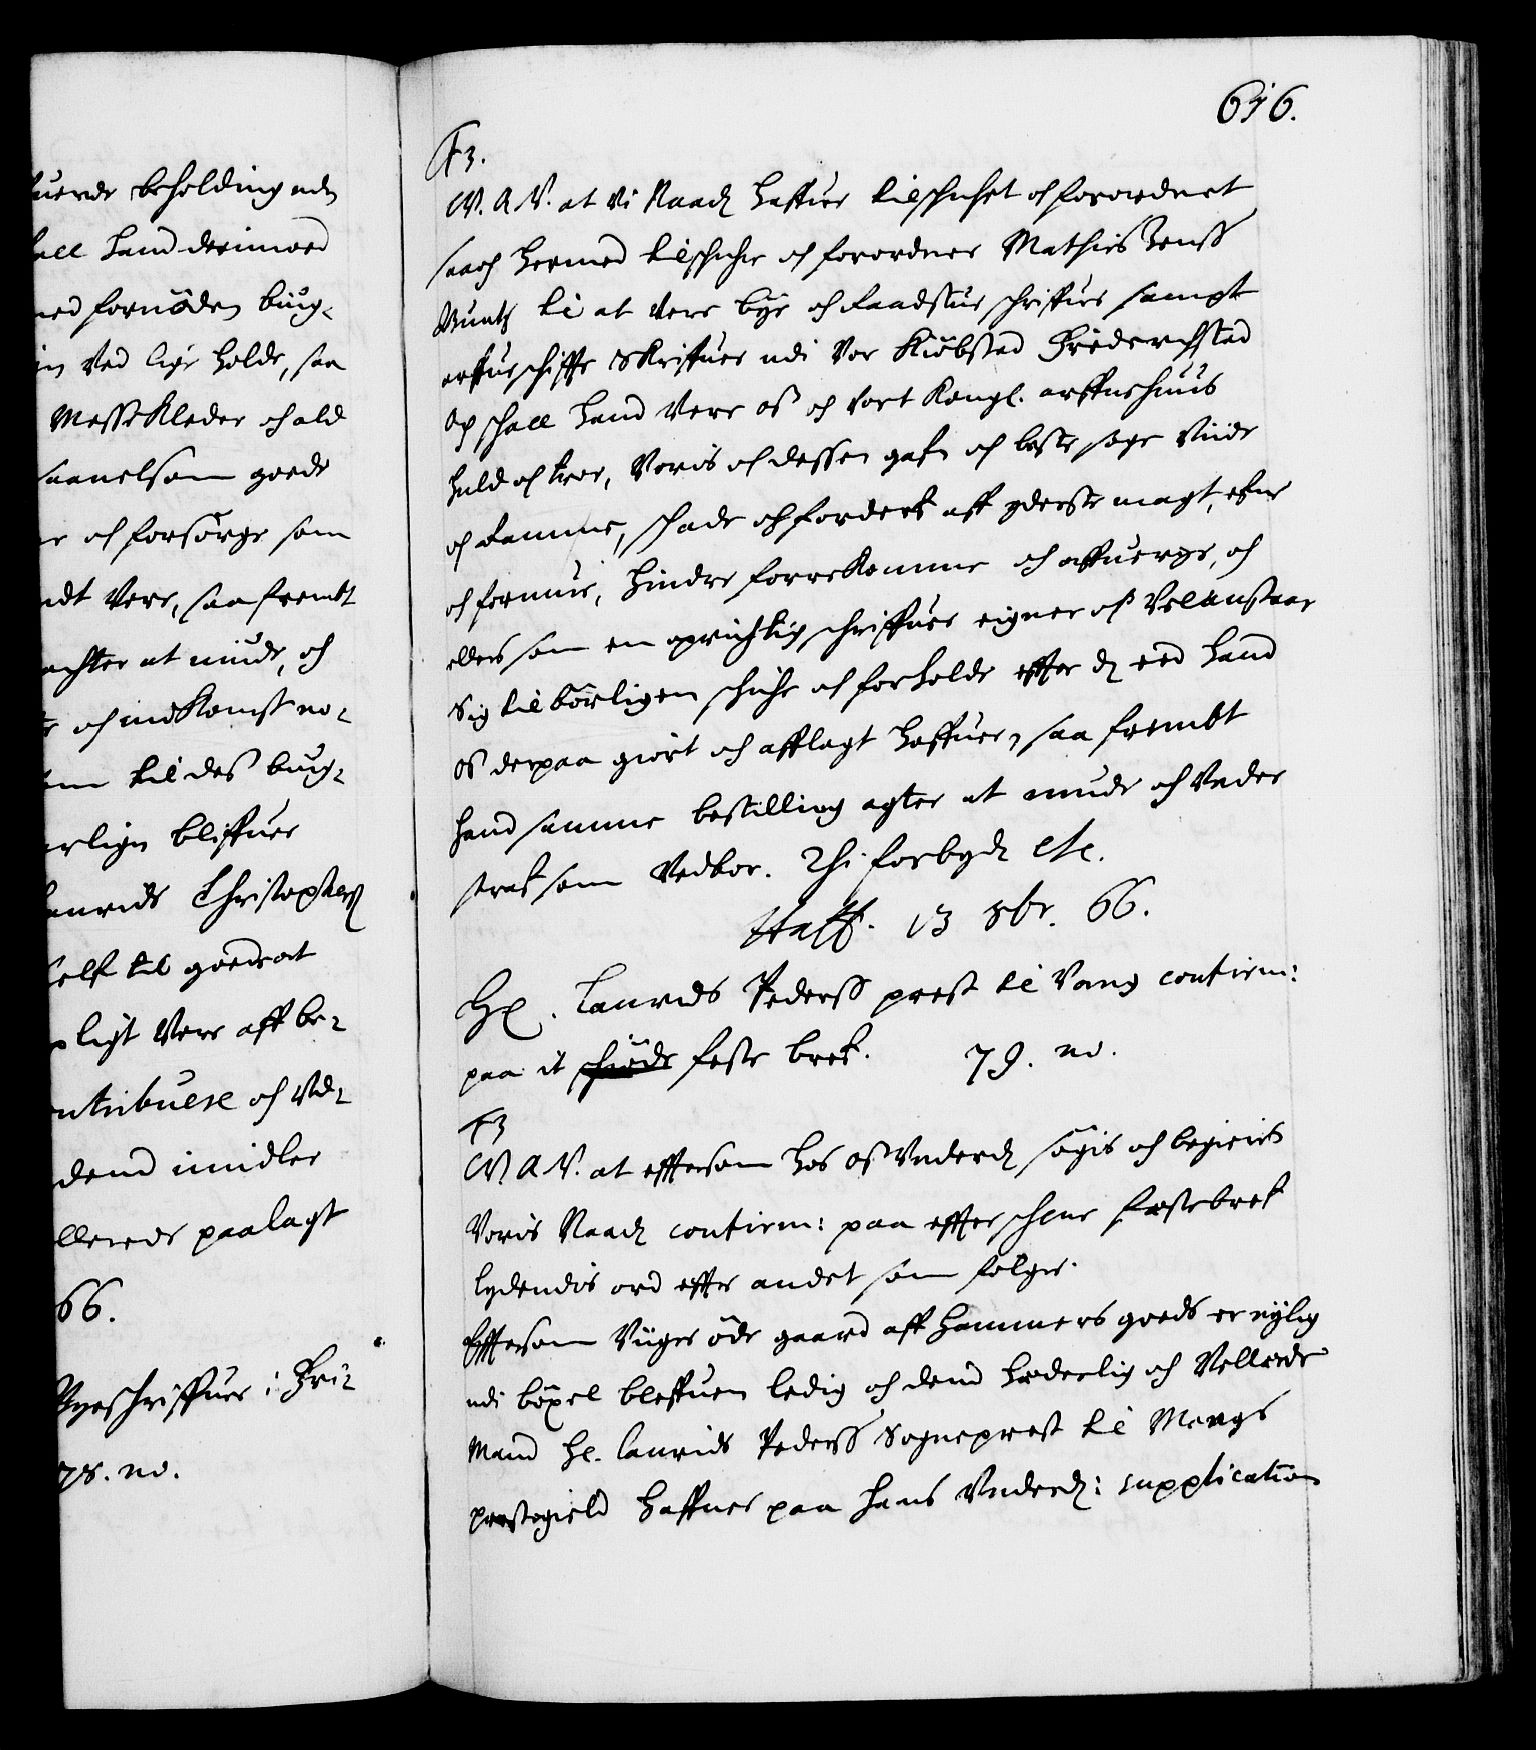 uerde beholding udj
all hand derimod
med fornöden büug-
n ved lige holde, saa
Messe Kleder och ald
saauelsom goede
r och forsörge som
dt vere, saa frembt
achter at niude, och
och indkomst no-
m til des büug-
rlign bliffuer
Laurids Christophers
self til goedvat
pligt vere aff be-
ntribuere och ud-
dend imidler
llerede paalagt
66.
Byeschriffuer i Fri-
78. no.
616.
F3.
W. A. V. at Vi Naadj haffuer tilschichet och forordnet
saa och hermed tilschicher och forordner Mathis Jenss
Muntz til at vere bye och Raadstue schriffuer sampt
arffueschiffts Skriffuer udi vor Kiöbsted Friderichstad
Och schall hand vere os och vort Kongl. arffuehuus
huld och troe, Voris och dessen gafn och beste söge viide
och ramme, schade och forderf aff yderste magt, efne
och formue, hindre forrekomme och affuerge, och
ellers som en oprichtig schriffuer eigner och vel anstaar
Sig tilbörligen schiche och forholde effter dj eed hand
os derpaa giört och afflagt haffuer, saa frembt
hand samme bestilling agter at niude och Under
straf som vedbör. Thi forbydj etc.
Haff. 13 8br. 66.
Hr. Laurids Pederss prest til Vang confirm:
paa it schiöde feste bref. 79. no.
F3
W. A. V. at efftersom hos os Underdj sögis och begieris
Voris Naadj confirm: paa effterschreune festebref
lydendis ord effter andet som fölger.
Effttersom Viiger öde gaard aff Hammers goeds er nylig
udi böxel bleffuen ledig och dend hæderlig och Vellærde
Mand Hr. Laurids Pederss Sogneprest til Wangs
prestegield haffuer paa hans Underdj: supplication